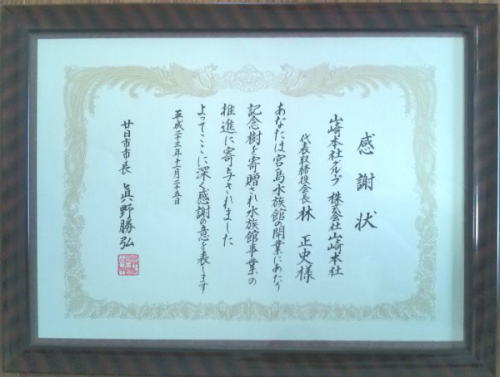 感謝状
山崎本社グループ 株式会社山崎本社
代表取締役会長 林 正史様
あなたは宮島水族館の開業にあたり
記念樹を寄贈され水族館事業の
推進に寄与されました
よってここに深く感謝の意を表します
平成二十三年十一月二十五日
廿日市市長 眞野勝弘